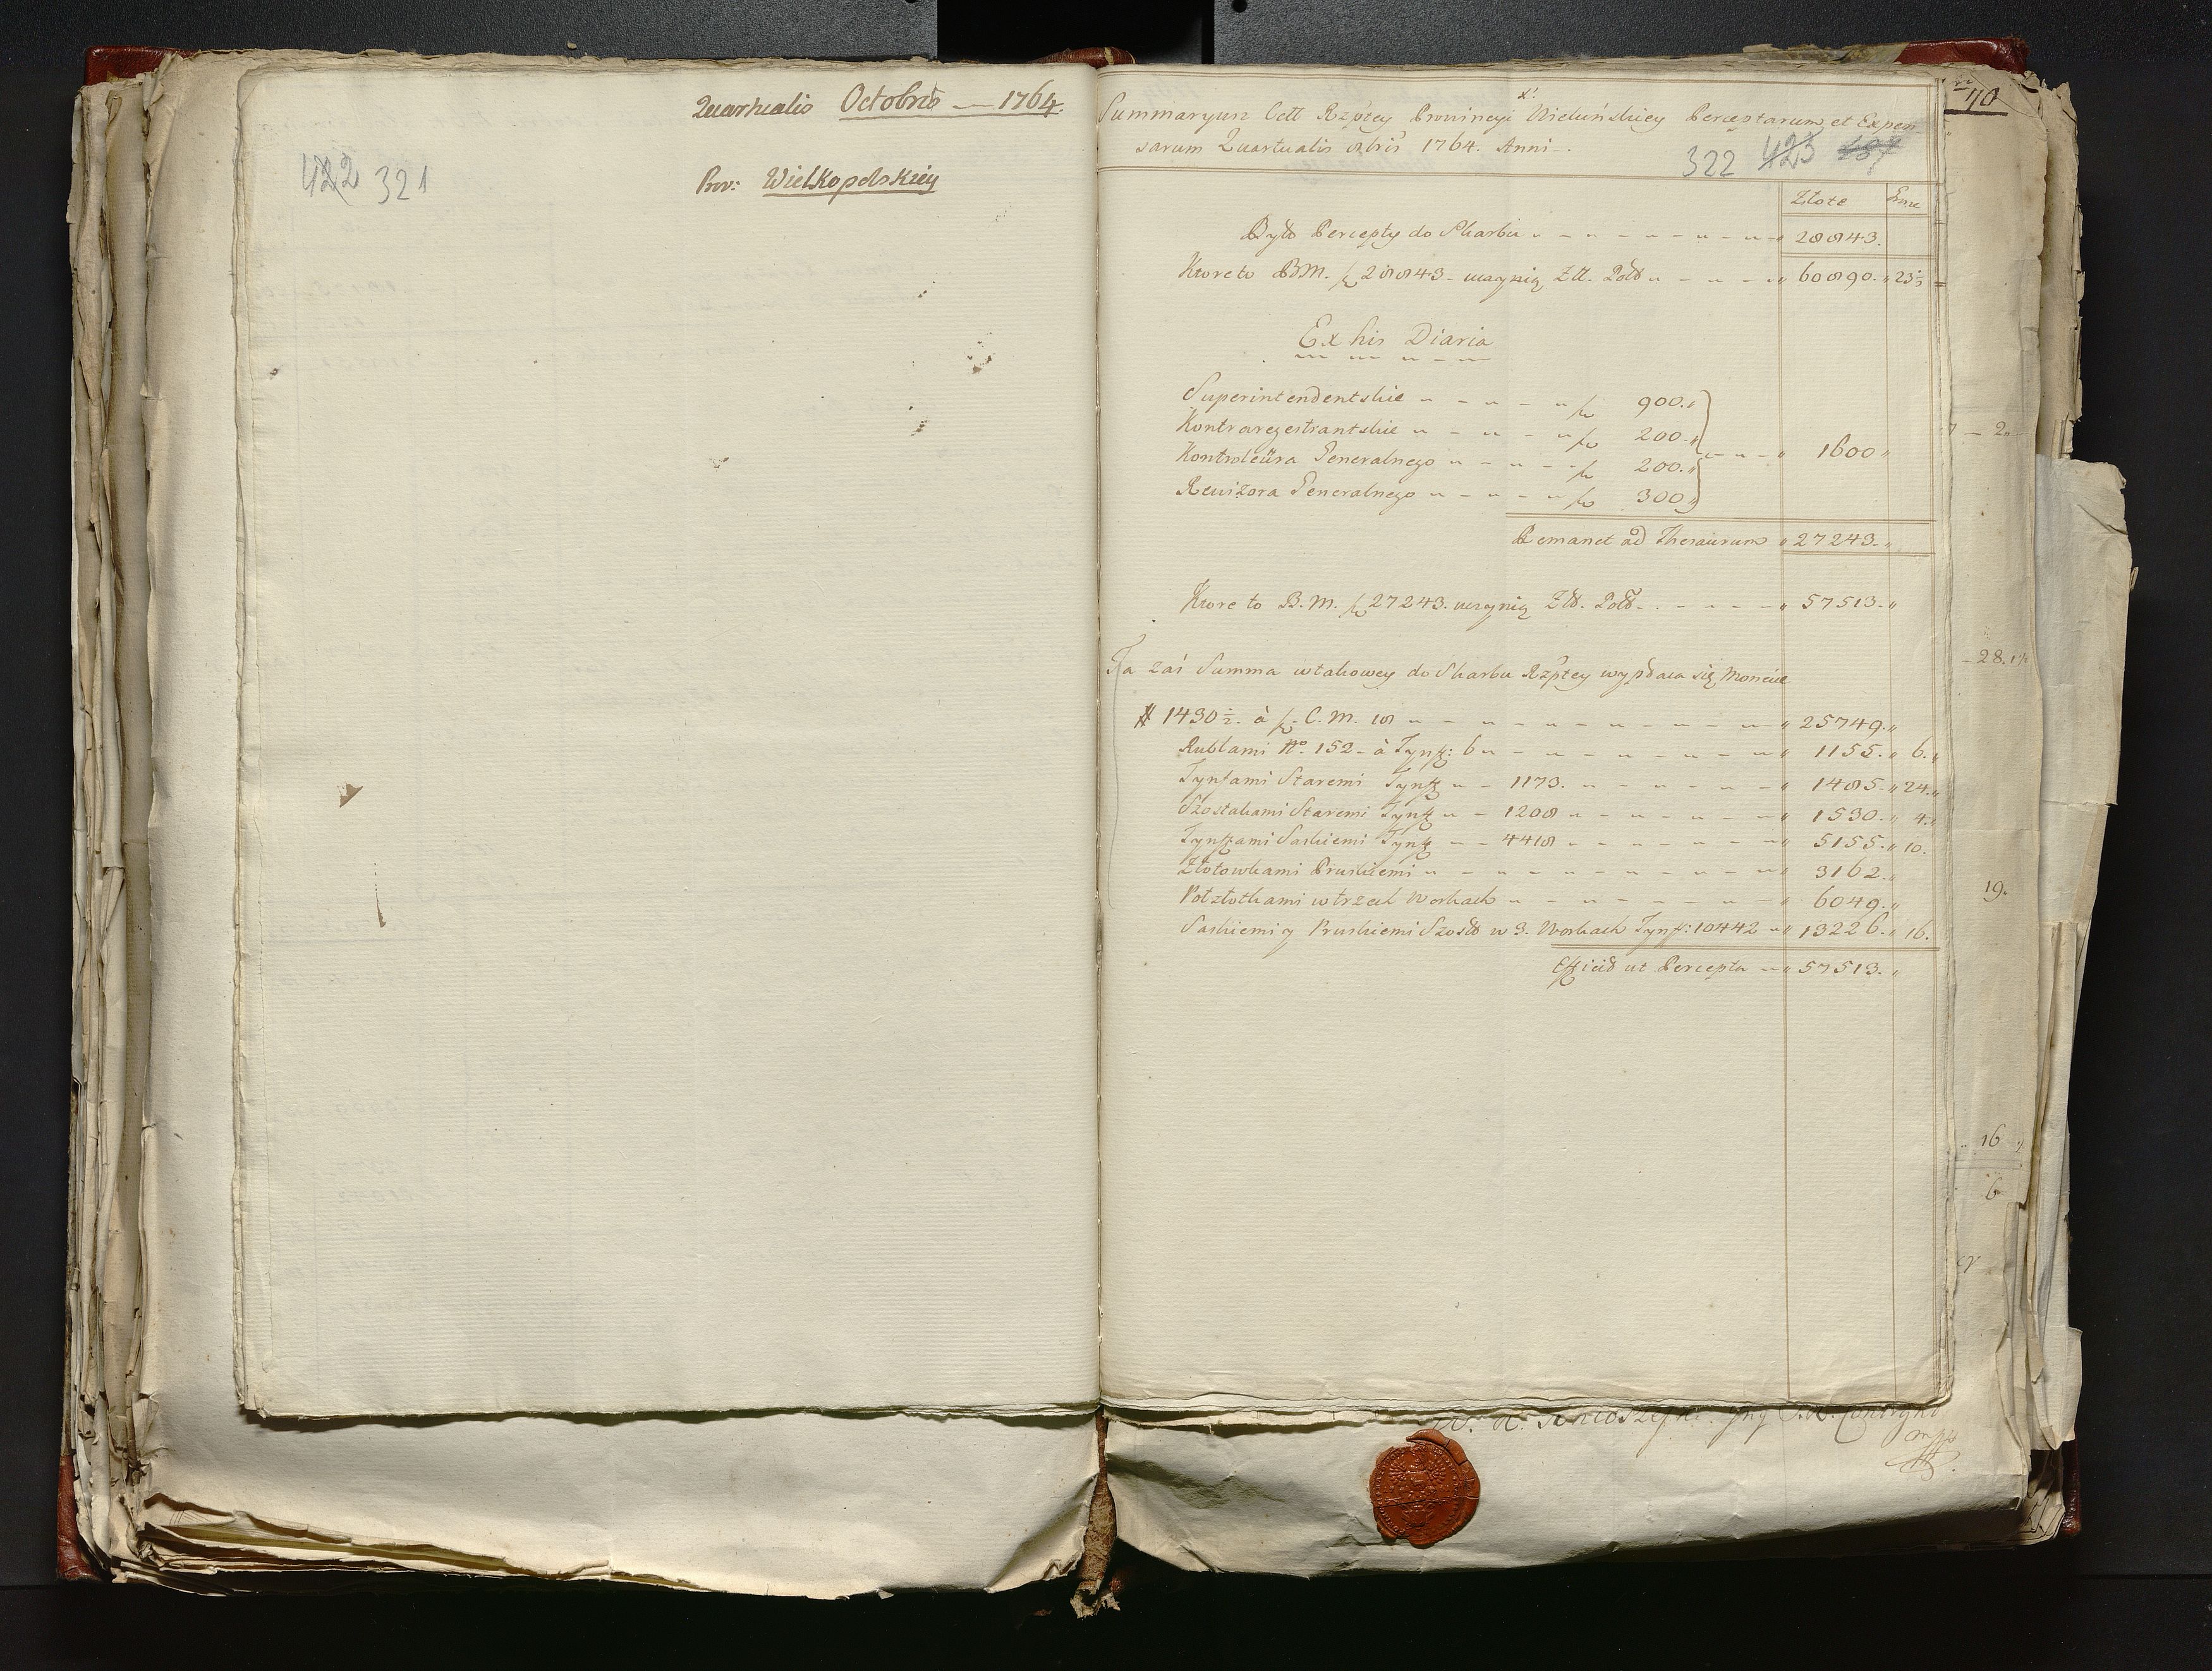 Quartualis Octobris — 1764.
422 321
Prov: Wielkopolskiey
Summaryusz Cell Rzptey Prowincyi Wieluńskiey Perceptarum et Expen-
sarum Quartualis 8bris 1764. Anni.
322 423 487
Złote
Było Percepty do Skarbu 28843.
Ktore to B.M. 28843 uczynią Zll. Pol 60890. 23 1/3
Ex his Diaria
Superintendentskie 900.
Kontraregestrantskie 200.
Kontroleura Generalnego 200. 1600
Rewizora Generalnego 300
Remanet ad Thesaurum 27243.
Ktore to B.M. 27243. uczynią Zł. Pol. 57513.
Ta zaś Summa w takowey do Skarbu Rzptey wypłaca się Monecie
# 1430 1/2. à C.M. 18 25749.
Rublami No. 152. à Tynf: 6 1155. 6.
Tynfami Staremi Tynf 1173. 1485. 24.
Szostakami Staremi Tynf 1208 1530. 4.
Tynfami Saskiemi Tynf 4418 5155. 10.
Złotowkami Pruskiemi 3162.
Połzłotkami w trzech Workach 6049.
Saskiemi y Pruskiemi Szost w 3. Workach Tynf: 10442 13226. 16.
Efficid ut Percepta 57513.
40
2
28.
19.
16
6
mpp